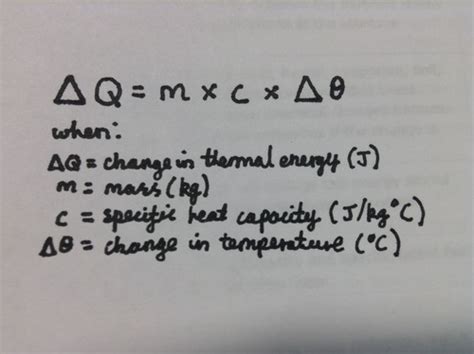 ΔQ = m × c × Δθ
when:
ΔQ = change in thermal energy (J)
m = mass (kg)
c = specific heat capacity (J/kg°C)
Δθ = change in temperature (°C)